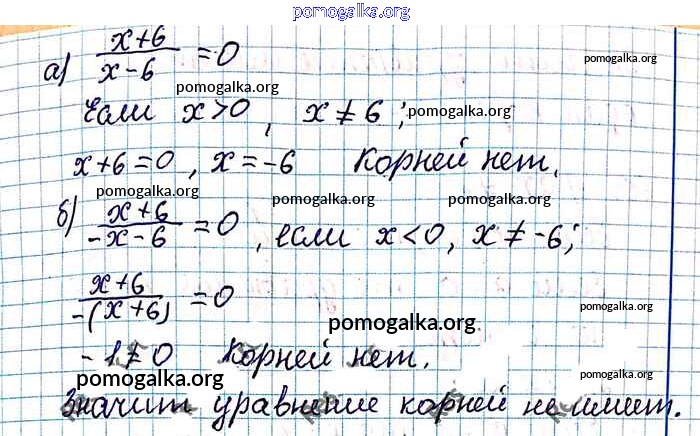 pomogalka.org
а) x+6/x-6 = 0
pomogalka.org
pomogalka.org
Если x>0, x≠6; pomogalka.org
x+6=0, x=-6 Корней нет.
pomogalka.org
pomogalka.org
pomogalka.org
б) x+6/-x-6 = 0, если x<0, x≠-6;
x+6/-(x+6) = 0
pomogalka.org
pomogalka.org
-1≠0 Корней нет.
pomogalka.org
Значит уравнение корней не имеет.